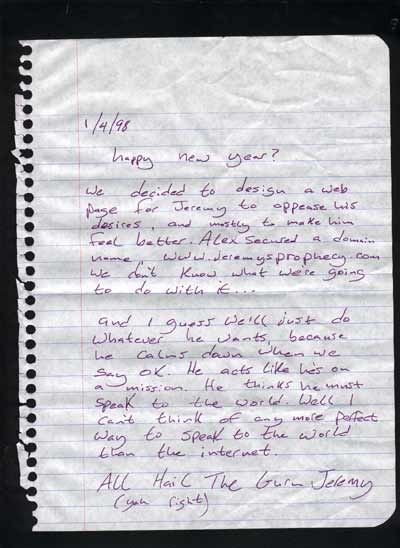 1/4/98
happy new year?
We decided to design a web
page for Jeremy to appease his
desires, and mostly to make him
feel better. Alex secured a domain
name, www.jeremysprophecy.com
we don't know what we're going
to do with it...
and I guess we'll just do
whatever he wants, because
he calms down when we
say OK. He acts like he's on
a mission. He thinks he must
speak to the world. Well I
can't think of any more perfect
way to speak to the world
than the internet.
All Hail The Guru Jeremy
(yah right)